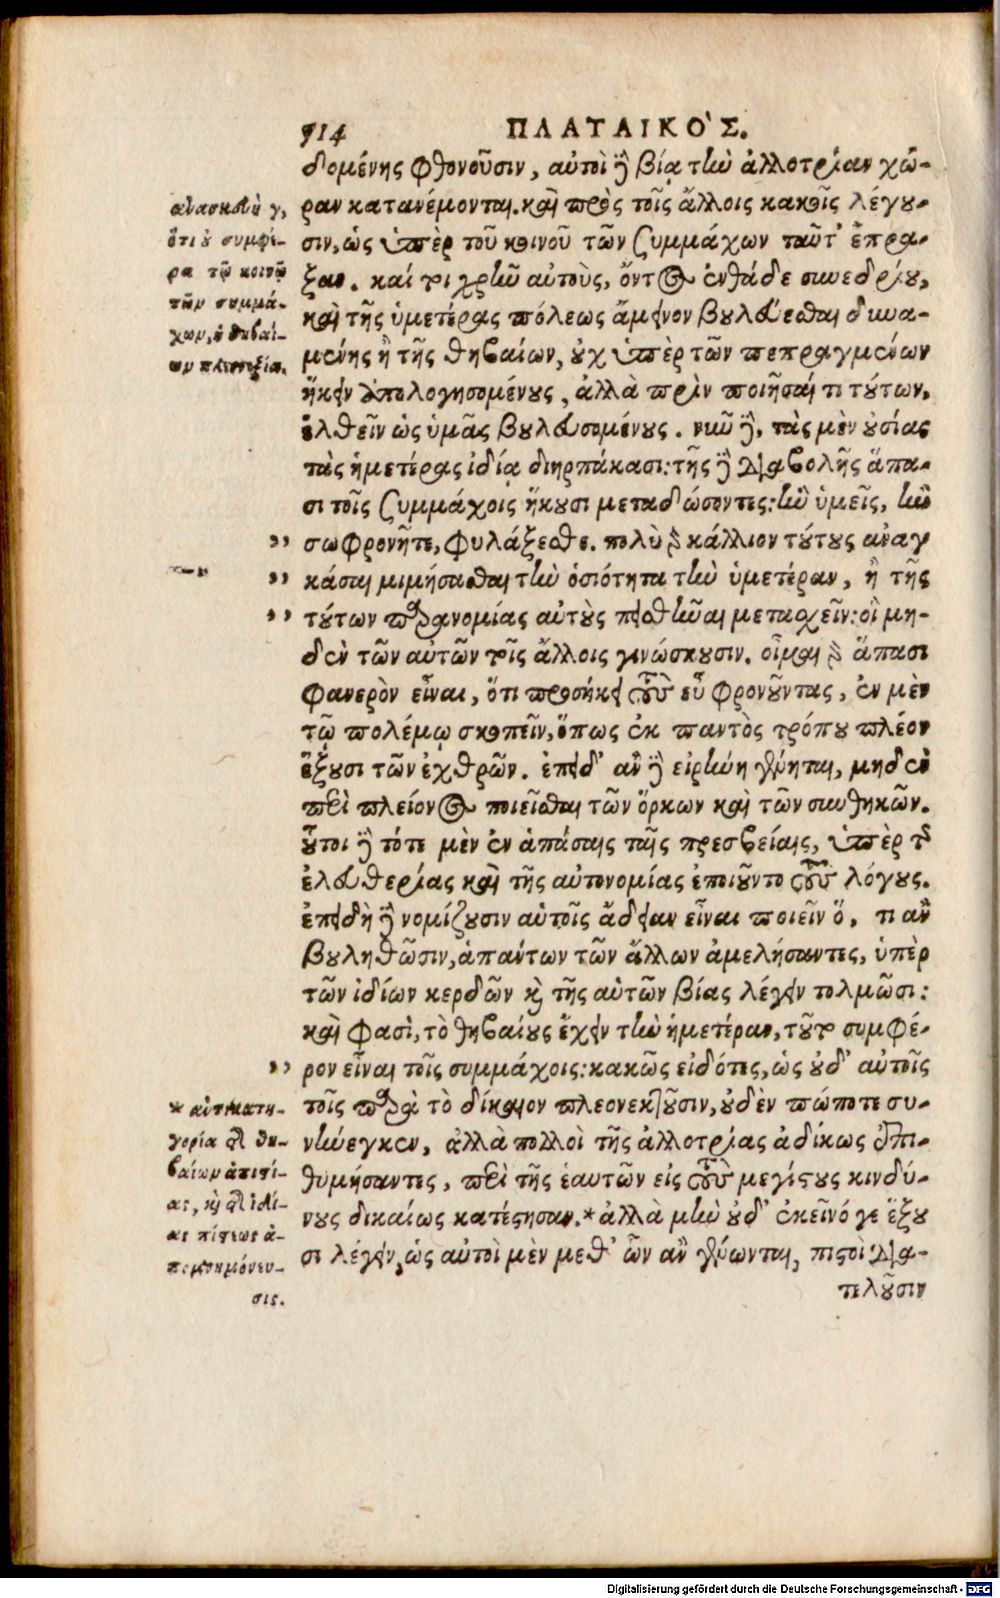 914 ΠΛΑΤΑΙΚΟ'Σ.
δομένης φθονοῦσιν, αὐτοὶ δὲ βίᾳ τὴν ἀλλοτρίαν χώ-
ραν κατανέμονται. καὶ πρὸς τοῖς ἄλλοις κακοῖς λέγου-
σιν, ὡς ὑπὲρ τοῦ κοινοῦ τῶν ξυμμάχων ταῦτ' ἔπρα-
ξαν. καί τοι χρῆν αὐτοὺς, ὄντος ἐνθάδε συνεδρίου,
καὶ τῆς ὑμετέρας πόλεως ἄμεινον βουλεύεσθαι δυνα-
μένης ἢ τῆς θηβαίων, οὐχ ὑπὲρ τῶν πεπραγμένων
ἥκειν ἀπολογησομένους, ἀλλὰ πρὶν ποιῆσαί τι τούτων,
ἐλθεῖν ὡς ὑμᾶς βουλευσομένους. νῦν δὲ, τὰς μὲν οὐσίας
τὰς ἡμετέρας ἰδίᾳ διηρπάκασι: τῆς δὲ διαβολῆς ἅπα-
σι τοῖς ξυμμάχοις ἥκουσι μεταδώσοντες: ἣν ὑμεῖς, ἢν
σωφρονῆτε, φυλάξεσθε. πολὺ γὰρ κάλλιον τούτους ἀναγ
κάσαι μιμήσασθαι τὴν ὁσιότητα τὴν ὑμετέραν, ἢ τῆς
τούτων παρανομίας αὐτοὺς πεισθῆναι μετασχεῖν: οἳ μη-
δὲν τῶν αὐτῶν τοῖς ἄλλοις γινώσκουσιν. οἶμαι γὰρ ἅπασι
φανερὸν εἶναι, ὅτι προσήκει τοὺς εὖ φρονοῦντας, ἐν μὲν
τῷ πολέμῳ σκοπεῖν, ὅπως ἐκ παντὸς τρόπου πλέον
ἕξουσι τῶν ἐχθρῶν. ἐπειδ' ἂν δὲ εἰρήνη γένηται, μηδὲν
περὶ πλείονος ποιεῖσθαι τῶν ὅρκων καὶ τῶν συνθηκῶν.
οὗτοι δὲ τότε μὲν ἐν ἁπάσαις ταῖς πρεσβείαις, ὑπὲρ τῆς
ἐλευθερίας καὶ τῆς αὐτονομίας ἐποιοῦντο τοὺς λόγους.
ἐπειδὴ δὲ νομίζουσιν αὑτοῖς ἄδειαν εἶναι ποιεῖν ὅ, τι ἂν
βουληθῶσιν, ἁπάντων τῶν ἄλλων ἀμελήσαντες, ὑπὲρ
τῶν ἰδίων κερδῶν καὶ τῆς αὑτῶν βίας λέγειν τολμῶσι:
καὶ φασὶ, τὸ θηβαίους ἔχειν τὴν ἡμετέραν, τοῦτο συμφέ-
ρον εἶναι τοῖς συμμάχοις: κακῶς εἰδότες, ὡς οὐδ' αὐτοῖς
τοῖς παρὰ τὸ δίκαιον πλεονεκτοῦσιν, οὐδὲν πώποτε συ-
νήνεγκεν, ἀλλὰ πολλοὶ τῆς ἀλλοτρίας ἀδίκως ἐπι-
θυμήσαντες, περὶ τῆς ἑαυτῶν εἰς τοὺς μεγίστους κινδύ-
νους δικαίως κατέστησαν.* ἀλλὰ μὴν οὐδ' ἐκεῖνό γε ἕξου
σι λέγειν, ὡς αὐτοὶ μὲν μεθ' ὧν ἂν γένωνται, πιστοὶ δια-
τελοῦσιν
ἀνασκευὴ γ,
ὅτι οὐ συμφέ-
ρα τῷ κοινῷ
τῶν συμμά-
χων, ἡ θηβαί-
ων πλεονεξία.
* ἀντικατη-
γορία τῆς θη-
βαίων ἀπιστί-
ας, καὶ τῆς ἰδί-
ας πίστεως ἀ-
πομνημόνευ-
σις.
Digitalisierung gefördert durch die Deutsche Forschungsgemeinschaft - DFG